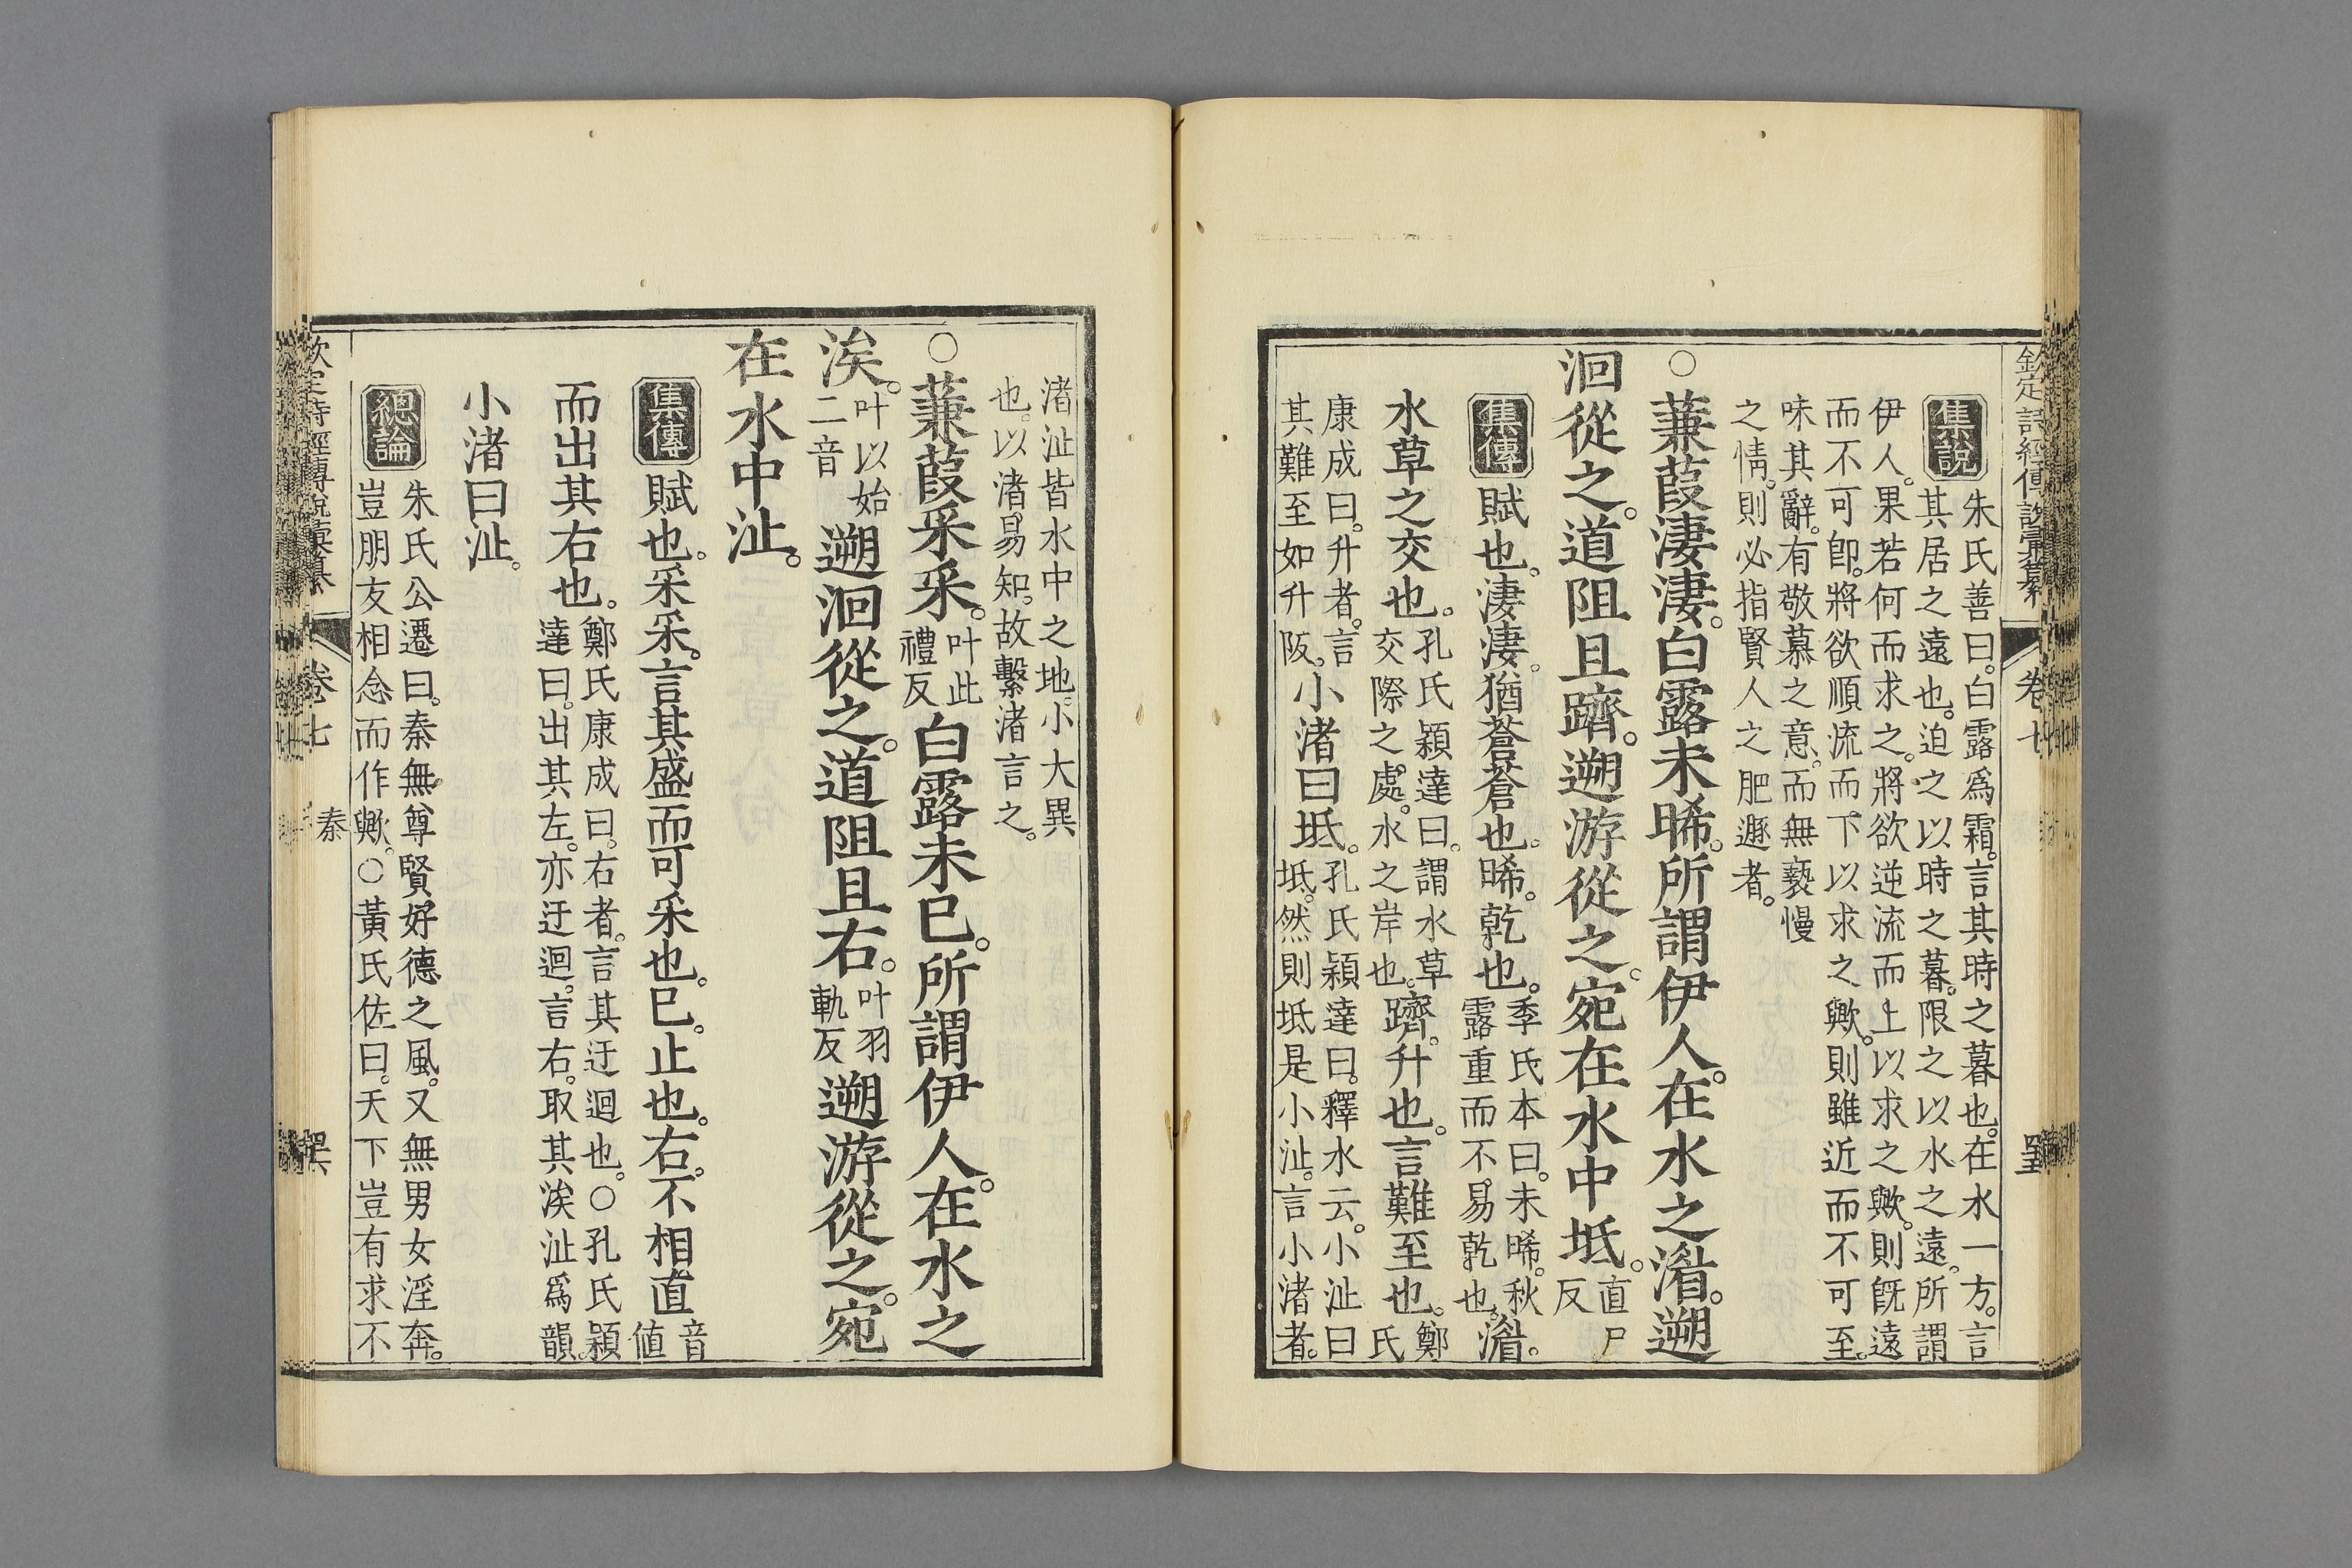 欽定詩經傳說彙纂 卷七
集說 朱氏善曰。白露爲霜。言其時之暮也。在水一方。言
其居之遠也。迫之以時之暮。限之以水之遠。所謂
伊人。果若何而求之。將欲逆流而上以求之歟。則旣遠
而不可卽。將欲順流而下以求之歟。則雖近而不可至。
味其辭。有敬慕之意。而無褻慢
之情。則必指賢人之肥遯者。
○蒹葭淒淒。白露未晞。所謂伊人。在水之湄。遡
洄從之。道阻且躋。遡游從之。宛在水中坻。直尸
反
集傳 賦也。淒淒。猶蒼蒼也。晞。乾也。季氏本曰。未晞。秋
露重而不易乾也。湄。
水草之交也。孔氏穎達曰。謂水草
交際之處。水之岸也。躋。升也。言難至也。鄭
氏
康成曰。升者。言
其難至如升阪。小渚曰坻。孔氏穎達曰。釋水云。小沚曰
坻。然則坻是小沚。言小渚者。
渚沚皆水中之地。小大異
也。以渚易知。故繫渚言之。
○蒹葭采采。叶此
禮反白露未已。所謂伊人。在水之
涘。叶以始
二音遡洄從之。道阻且右。叶羽
軌反遡游從之。宛
在水中沚。
集傳 賦也。采采。言其盛而可采也。已。止也。右。不相直音
値
而出其右也。鄭氏康成曰。右者。言其迂迴也。○孔氏穎
達曰。出其左。亦迂迴。言右。取其涘沚爲韻。
小渚曰沚。
總論 朱氏公遷曰。秦無尊賢好德之風。又無男女淫奔。
豈朋友相念而作歟。○黃氏佐曰。天下豈有求不
欽定詩經傳說彙纂 卷七 秦